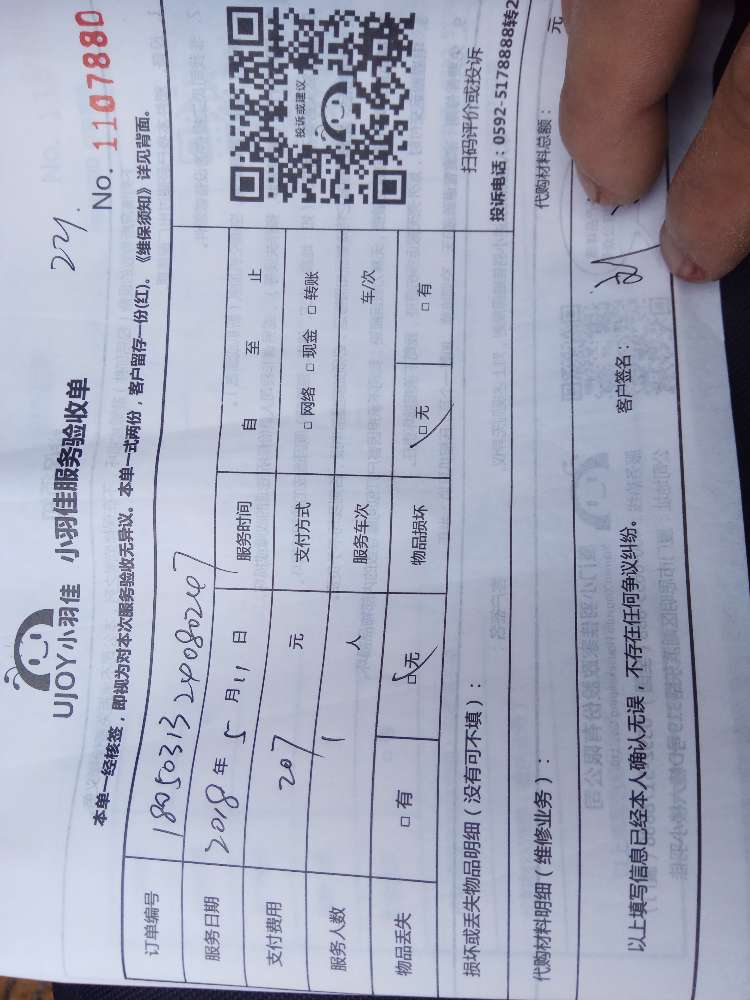 UJOY小羽佳 小羽佳服务验收单
No. 1107880
本单一经核签，即视为对本次服务验收无异议。本单一式两份，客户留存一份(红)。《维保须知》详见背面。
订单编号 18050313240802407
服务日期 2018年5月11日 服务时间 自 至 止
支付费用 207 元 支付方式 □网络 □现金 □转账
服务人数 1 人 服务车次 车/次
物品丢失 □有 □无 物品损坏 □无 □有
投诉或建议
扫码评价或投诉
投诉电话：0592-5178888转2
损坏或丢失物品明细（没有可不填）：
代购材料明细（维修业务）： 代购材料总额： 元
以上填写信息已经本人确认无误，不存在任何争议纠纷。 客户签名：